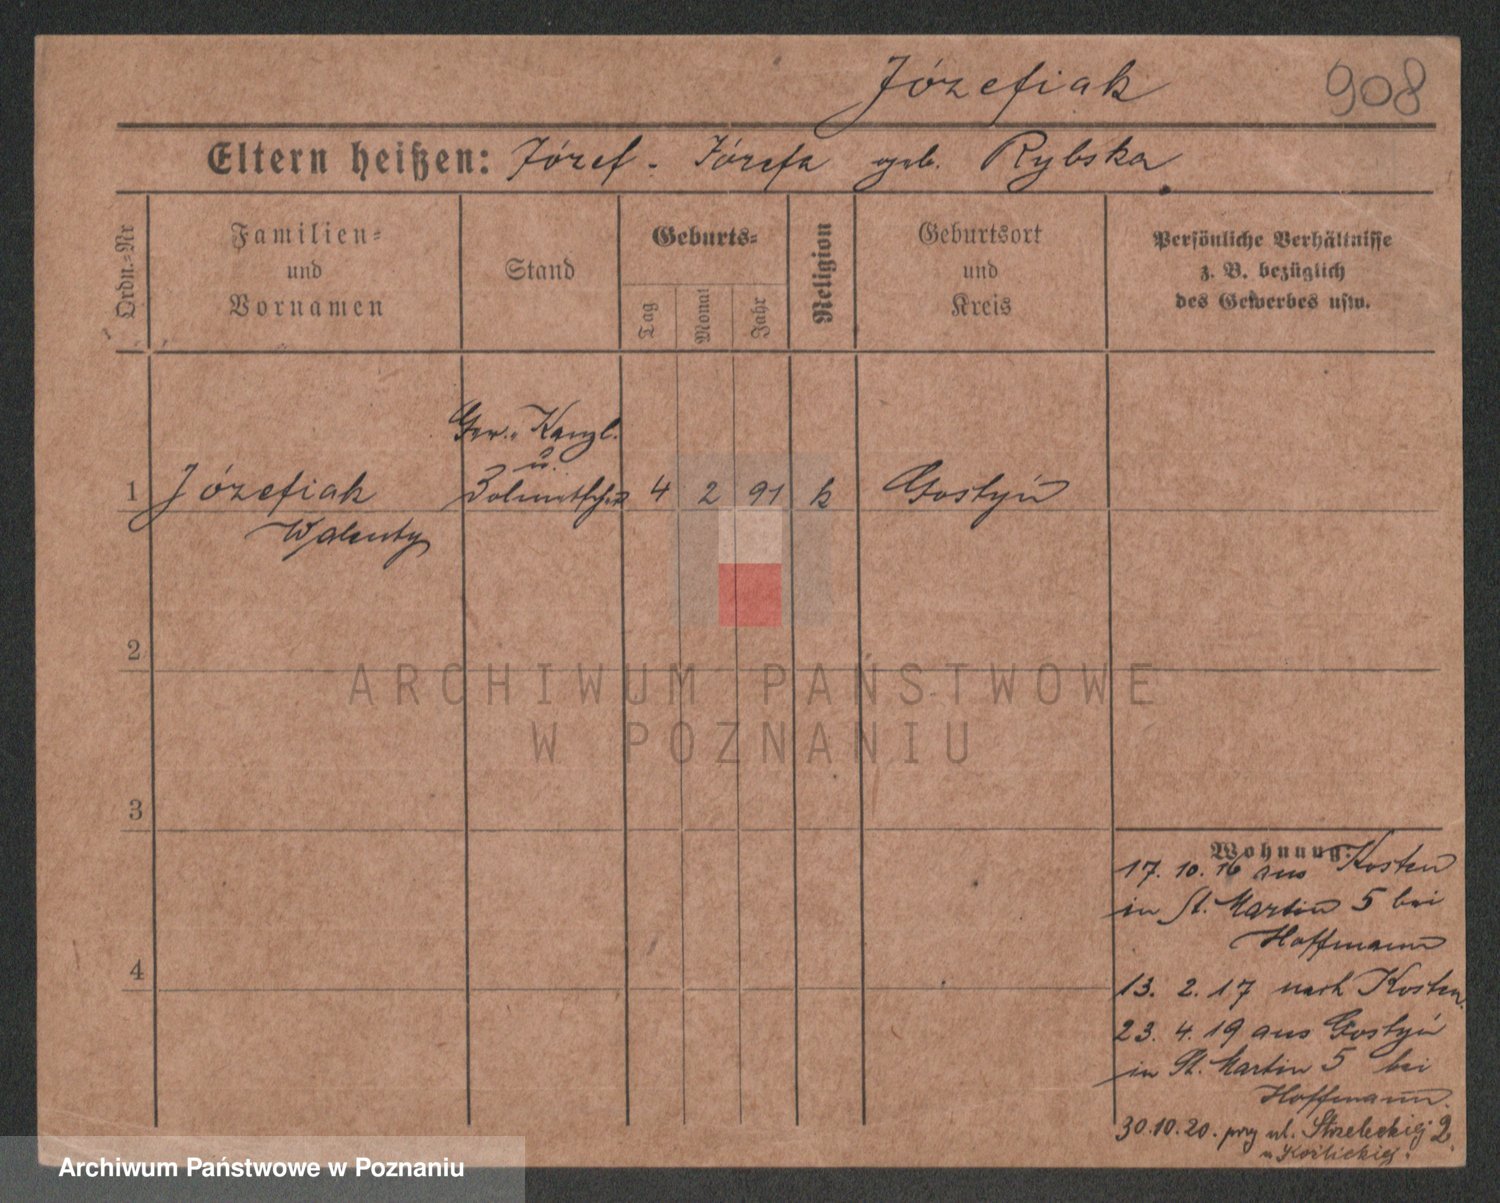 Józefiak 908
Eltern heißen: Józef - Józefa geb. Rybska
Ordn.-Nr
Familien-
und
Vornamen
Stand
Geburts-
Tag
Monat
Jahr
Religion
Geburtsort
und
Kreis
Persönliche Verhältnisse
z. B. bezüglich
des Gewerbes usw.
Ger.. Kanzl.
u.
1 Józefiak Dolmetscher 4 2 91 k Gostyń
Walenty
2
3
4
Wohnung:
17. 10. 16 aus Kosten
in St. Martin 5 bei
Hoffmann
13. 2. 17 nach Kosten.
23. 4. 19 aus Gostyń
in St. Martin 5 bei
Hoffmann.
30.10.20. przy ul. Strzeleckiej 2.
u
ARCHIWUM PAŃSTWOWE
W POZNANIU
Archiwum Państwowe w Poznaniu